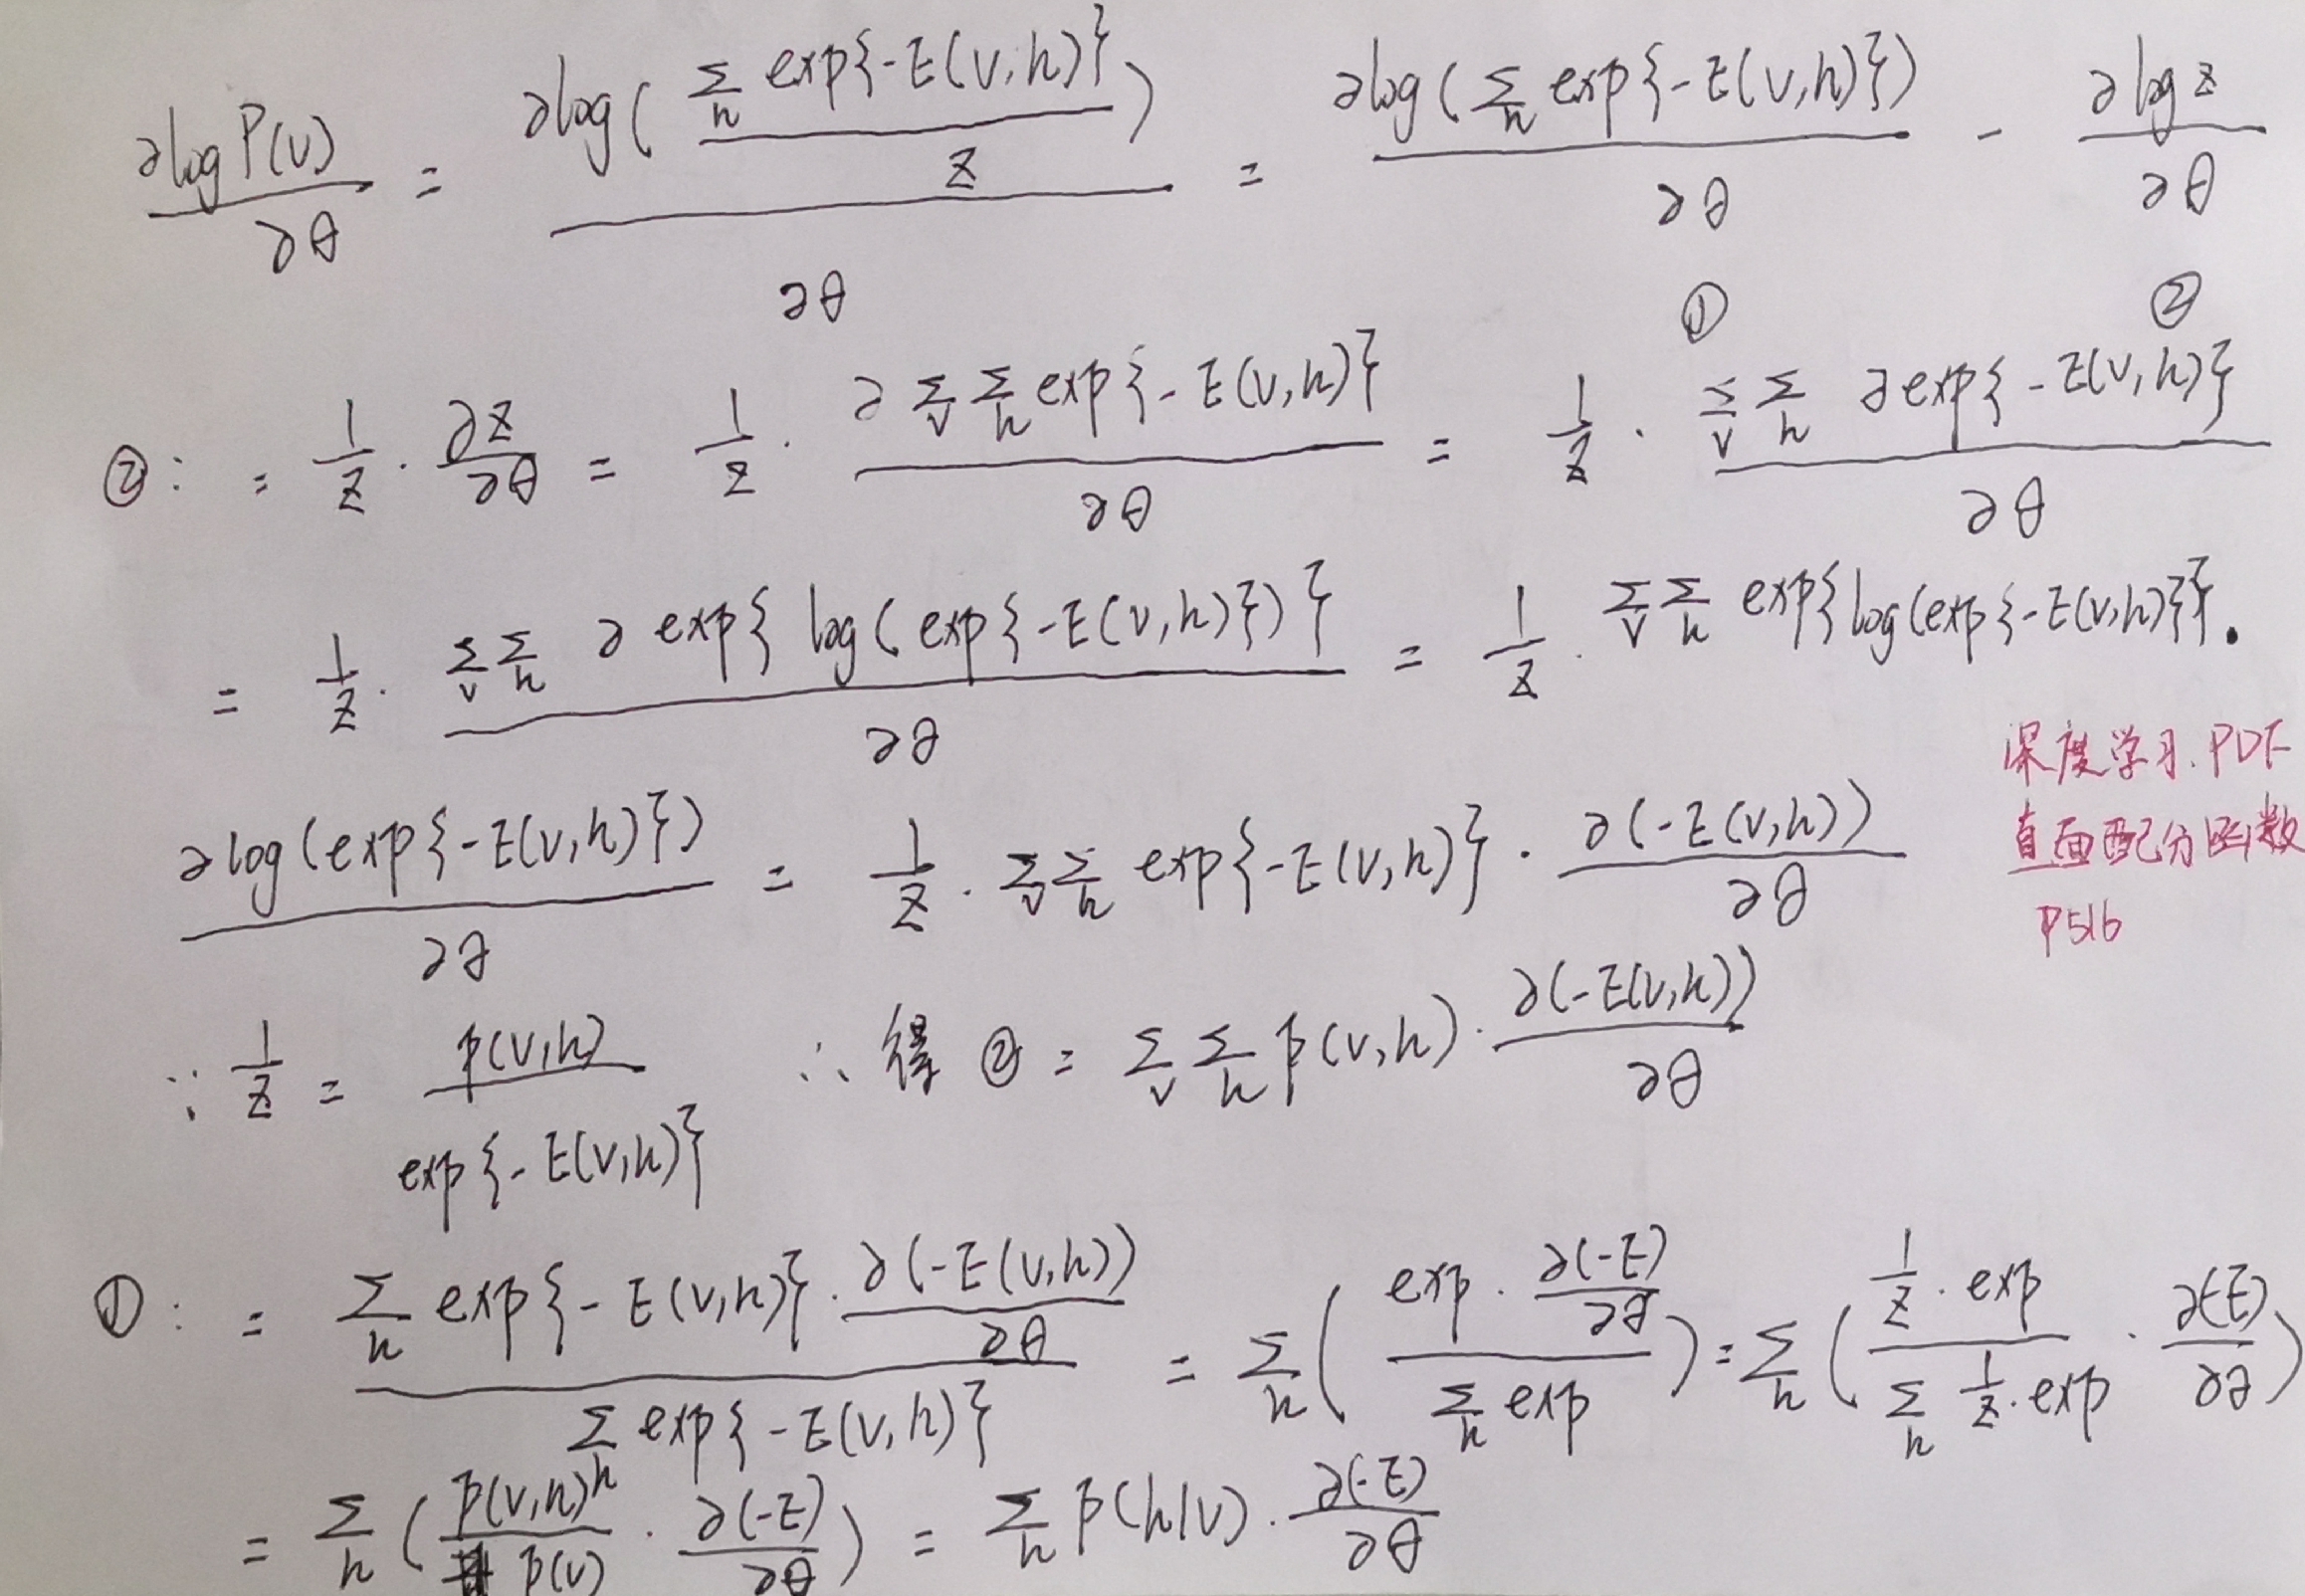 ∂log P(v)/∂θ = ∂log(Σ_h exp{-E(v,h)}/Z)/∂θ = ∂log(Σ_h exp{-E(v,h)})/∂θ - ∂log Z/∂θ
① ②
②: = 1/Z · ∂Z/∂θ = 1/Z · ∂Σ_vΣ_h exp{-E(v,h)}/∂θ = 1/Z · Σ_vΣ_h ∂exp{-E(v,h)}/∂θ
= 1/Z · Σ_vΣ_h ∂exp{log(exp{-E(v,h)})}/∂θ = 1/Z · Σ_vΣ_h exp{log(exp{-E(v,h)}}·
深度学习.PDF
直面配分函数
P516
∂log(exp{-E(v,h)})/∂θ = 1/Z · Σ_vΣ_h exp{-E(v,h)} · ∂(-E(v,h))/∂θ
∵ 1/Z = p(v,h)/exp{-E(v,h)} ∴ 得 ② = Σ_vΣ_h p(v,h) · ∂(-E(v,h))/∂θ
①: = Σ_h exp{-E(v,h)} · ∂(-E(v,h))/∂θ / Σ_h exp{-E(v,h)} = Σ_h(exp · ∂(-E)/∂θ / Σ_h exp) = Σ_h(1/Z · exp / Σ_h 1/Z · exp · ∂(-E)/∂θ)
= Σ_h(p(v,h)/p(v) · ∂(-E)/∂θ) = Σ_h p(h|v) · ∂(-E)/∂θ